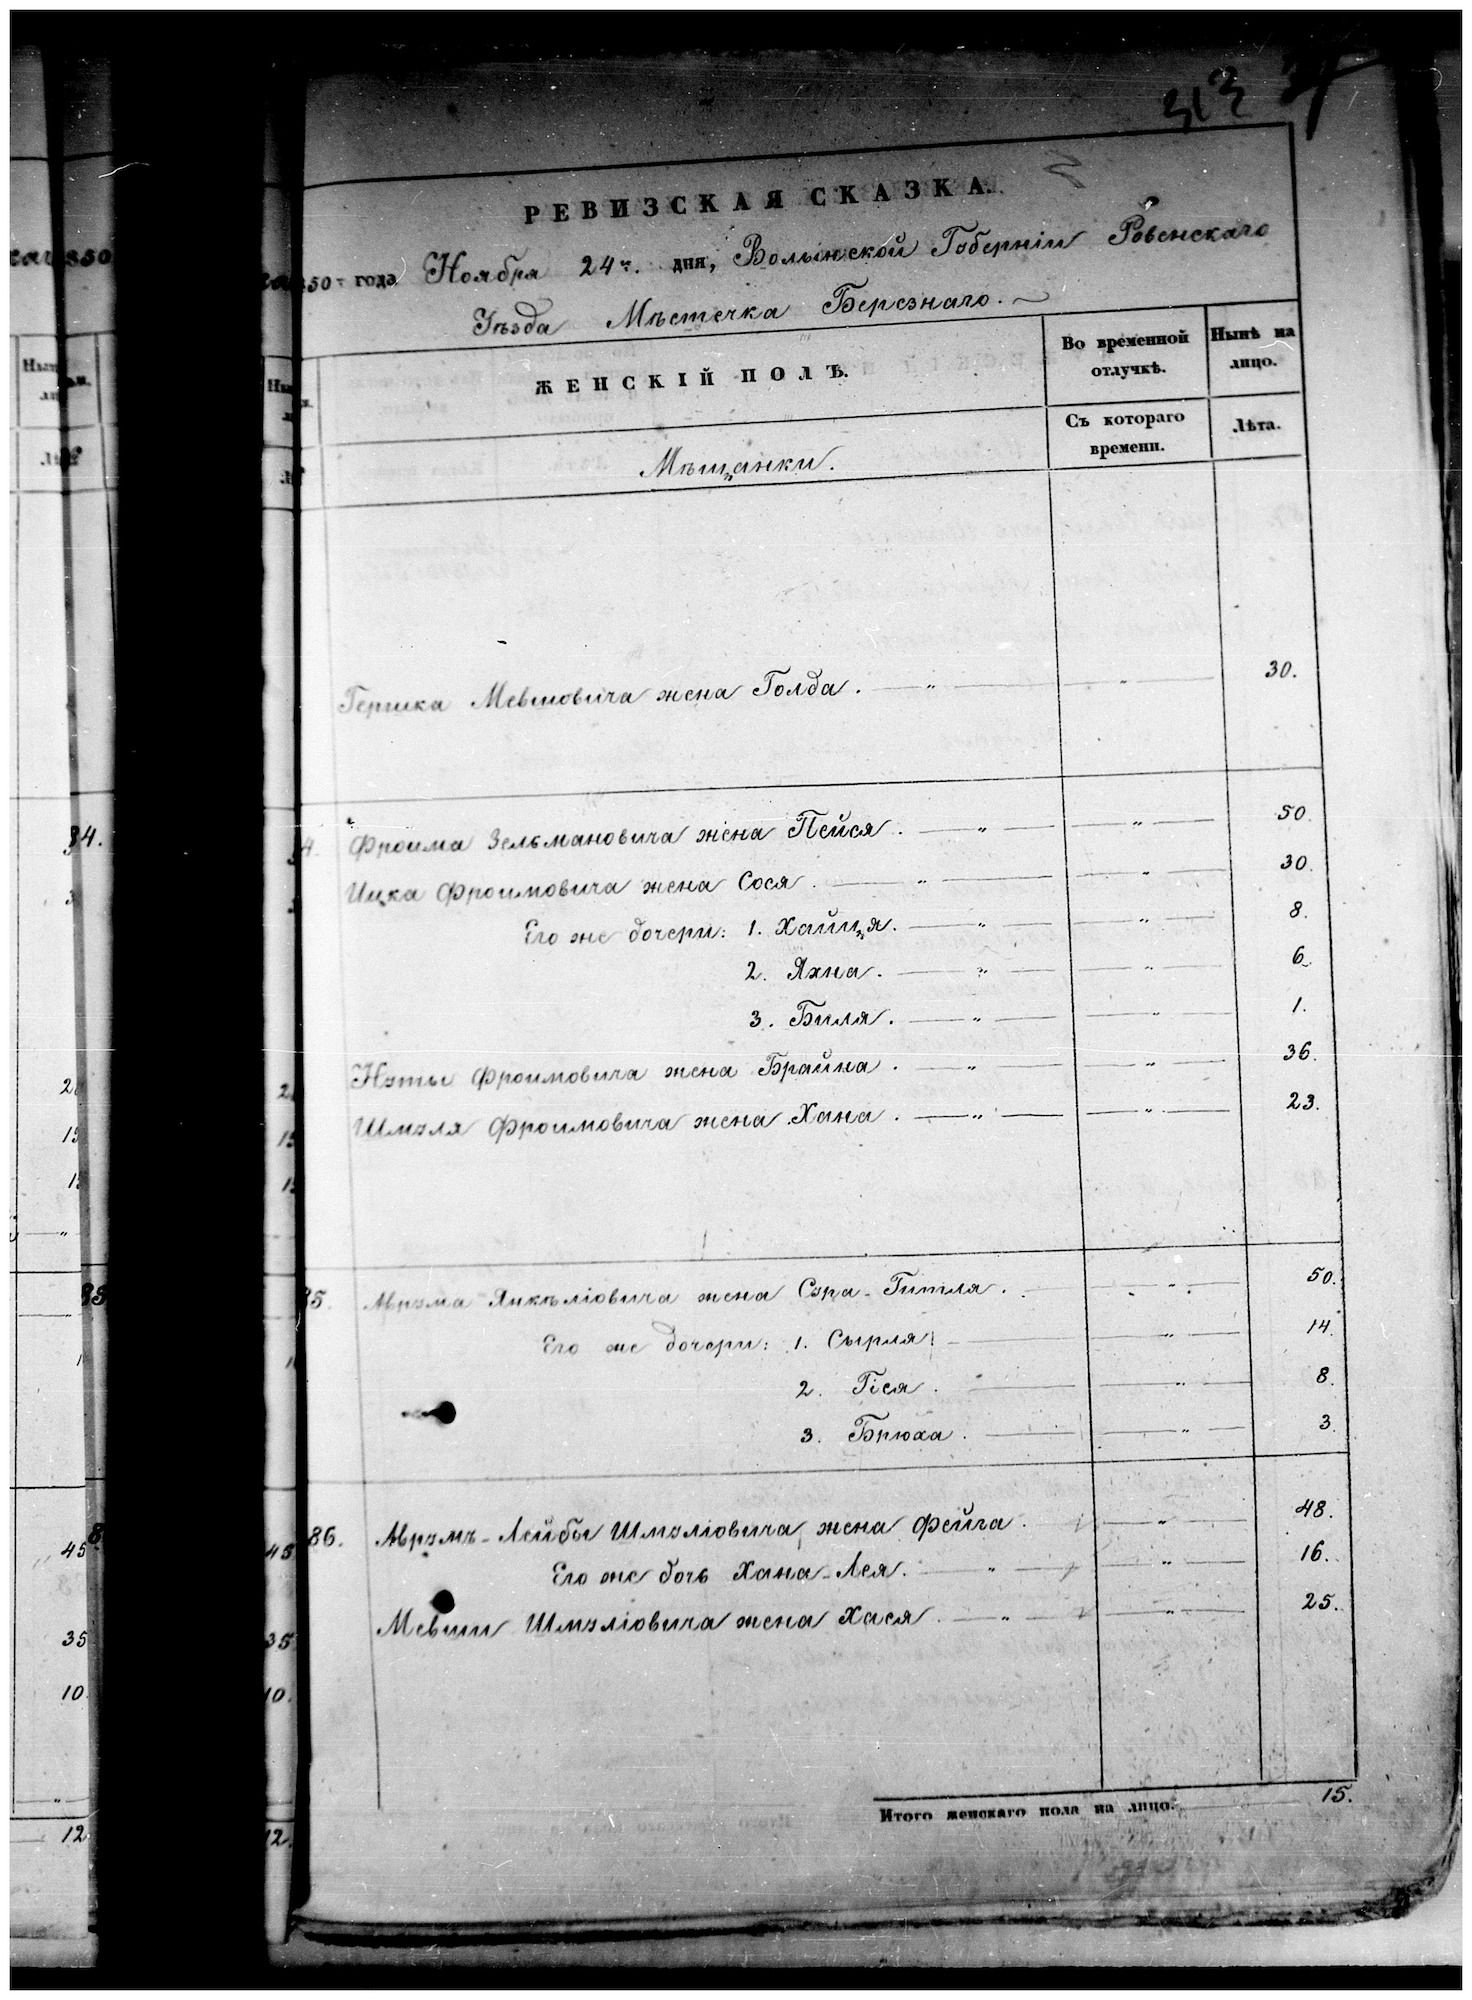 313
РЕВИЗСКАЯ СКАЗКА.
850 года Ноября 24го дня, Волынской Губерніи Ровенскаго
Уѣзда Мѣстечка Березнаго.
ЖЕНСКІЙ ПОЛЪ.
Во временной отлучкѣ.
Нынѣ на лицо.
Съ котораго времени.
Лѣта.
Мѣщанки.
Гершка Мевшовича жена Голда. — „ — „ — 30.
84. Фроима Зельмановича жена Пейся. — „ — „ — 50.
Ицка Фроимовича жена Сося. — „ — „ — 30.
Его же дочери: 1. Хайця. — „ — „ — 8.
2. Яхна. — „ — „ — 6.
3. Биля. — „ — „ — 1.
Нэты Фроимовича жена Брайна. — „ — „ — 36.
Шмэля Фроимовича жена Хана. — „ — „ — 23.
85. Аврэма Янкѣліовича жена Сэра-Гитля. — „ — 50.
Его же дочери: 1. Сырля. — „ — 14.
2. Гіся. — „ — 8.
3. Брюха. — „ — 3.
86. Аврэмъ-Лейбы Шмэліовича жена Фейга. — „ — 48.
Его же дочь Хана-Лея. — „ — „ — 16.
Мевши Шмэліовича жена Хася. — „ — „ — 25.
Итого женскаго пола на лицо. 15.